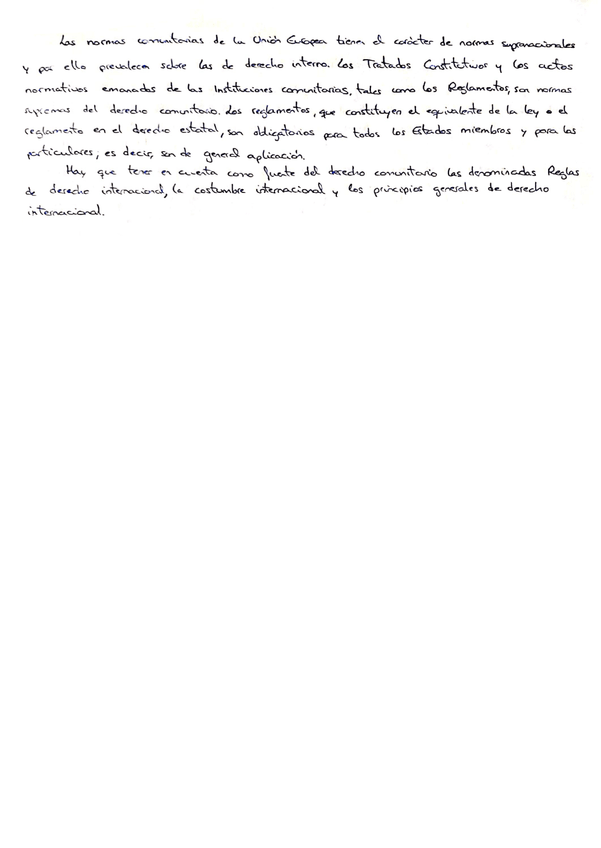 Las normas comunitarias de la Unión Europea tienen el carácter de normas supranacionales
y por ello prevalecen sobre las de derecho interno. Los Tratados Constitutivos y los actos
normativos emanados de las Instituciones comunitarias, tales como los Reglamentos, son normas
supremas del derecho comunitario. Los reglamentos, que constituyen el equivalente de la ley o el
reglamento en el derecho estatal, son obligatorios para todos los Estados miembros y para los
particulares, es decir, son de general aplicación.
Hay que tener en cuenta como fuente del derecho comunitario las denominadas Reglas
de derecho internacional, la costumbre internacional y los principios generales de derecho
internacional.